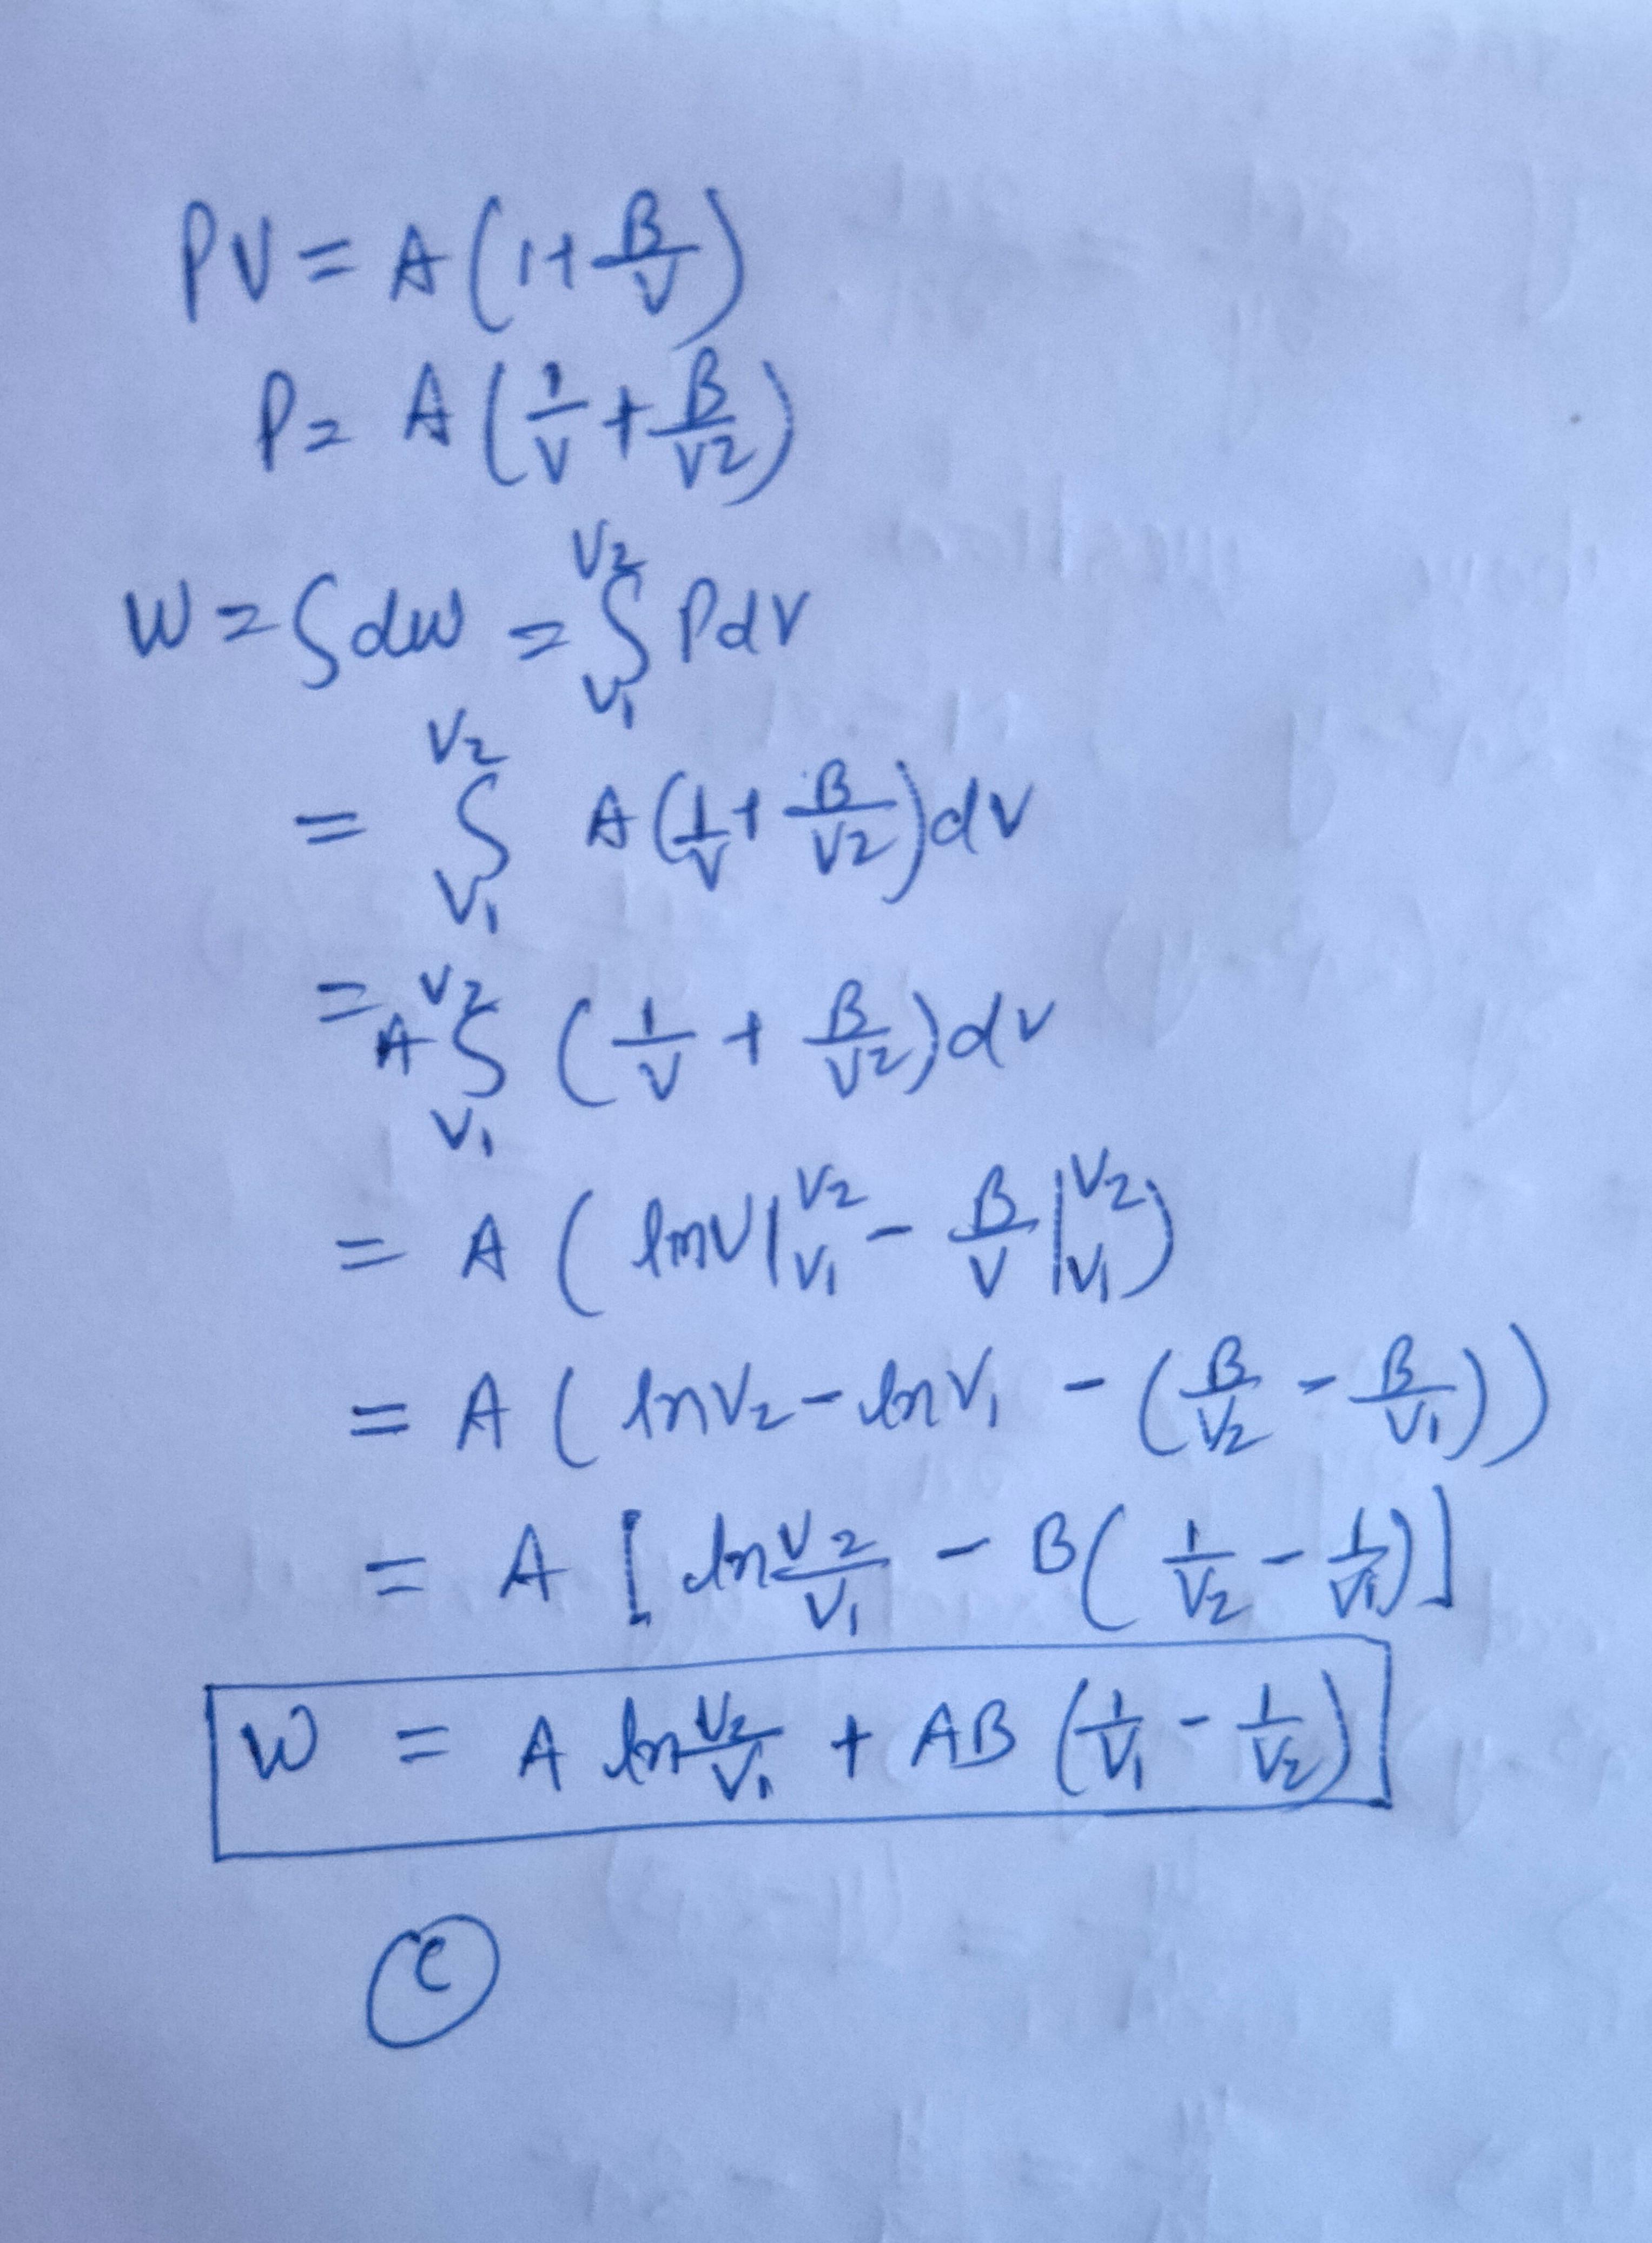 PV = A(1+B/V)
P= A(1/V + B/V2)
W = ∫dw = ∫V1V2 PdV
= ∫V1V2 A(1/V + B/V2)dV
= A∫V1V2 (1/V + B/V2)dV
= A ( lnV|V1V2 - B/V|V1V2)
= A ( lnV2 - lnV1 - (B/V2 - B/V1))
= A [ ln V2/V1 - B( 1/V2 - 1/V1)]
W = A ln V2/V1 + AB (1/V1 - 1/V2)
C